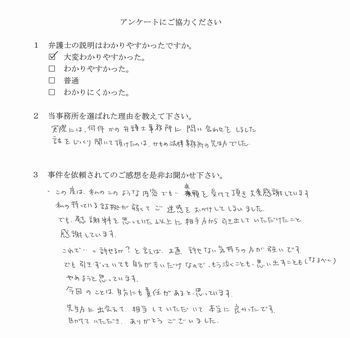 アンケートにご協力ください
1 弁護士の説明はわかりやすかったですか。
☑ 大変わかりやすかった。
□ わかりやすかった。
□ 普通
□ わかりにくかった。
2 当事務所を選ばれた理由を教えて下さい。
実際には、何件かの弁護士事務所に問い合わせをしました
話をじっくり聞いて頂けたのは、かもめ法律事務所の先生でした
3 事件を依頼されてのご感想を是非お聞かせ下さい。
・この度は、私のこのような内容でも、依頼を受けて頂き大変感謝しています
私の持っている証拠が弱くてご迷惑をおかけしてしまいました。
でも、慰謝料を思っていた以上に相手方から引き出していただけたこと、
感謝しています。
これで…許せるか?と言えば、正直 許せない気持ちの方が強いです
でも引きずっていても自分が辛いだけなので、もう泣くことも、思い出すことも(なるべく)
やめようと思っています。
今回のことは自分にも責任があると、思っています。
先生方に出会えて、担当していただいて本当に良かったです。
助けていただき、ありがとうございました。